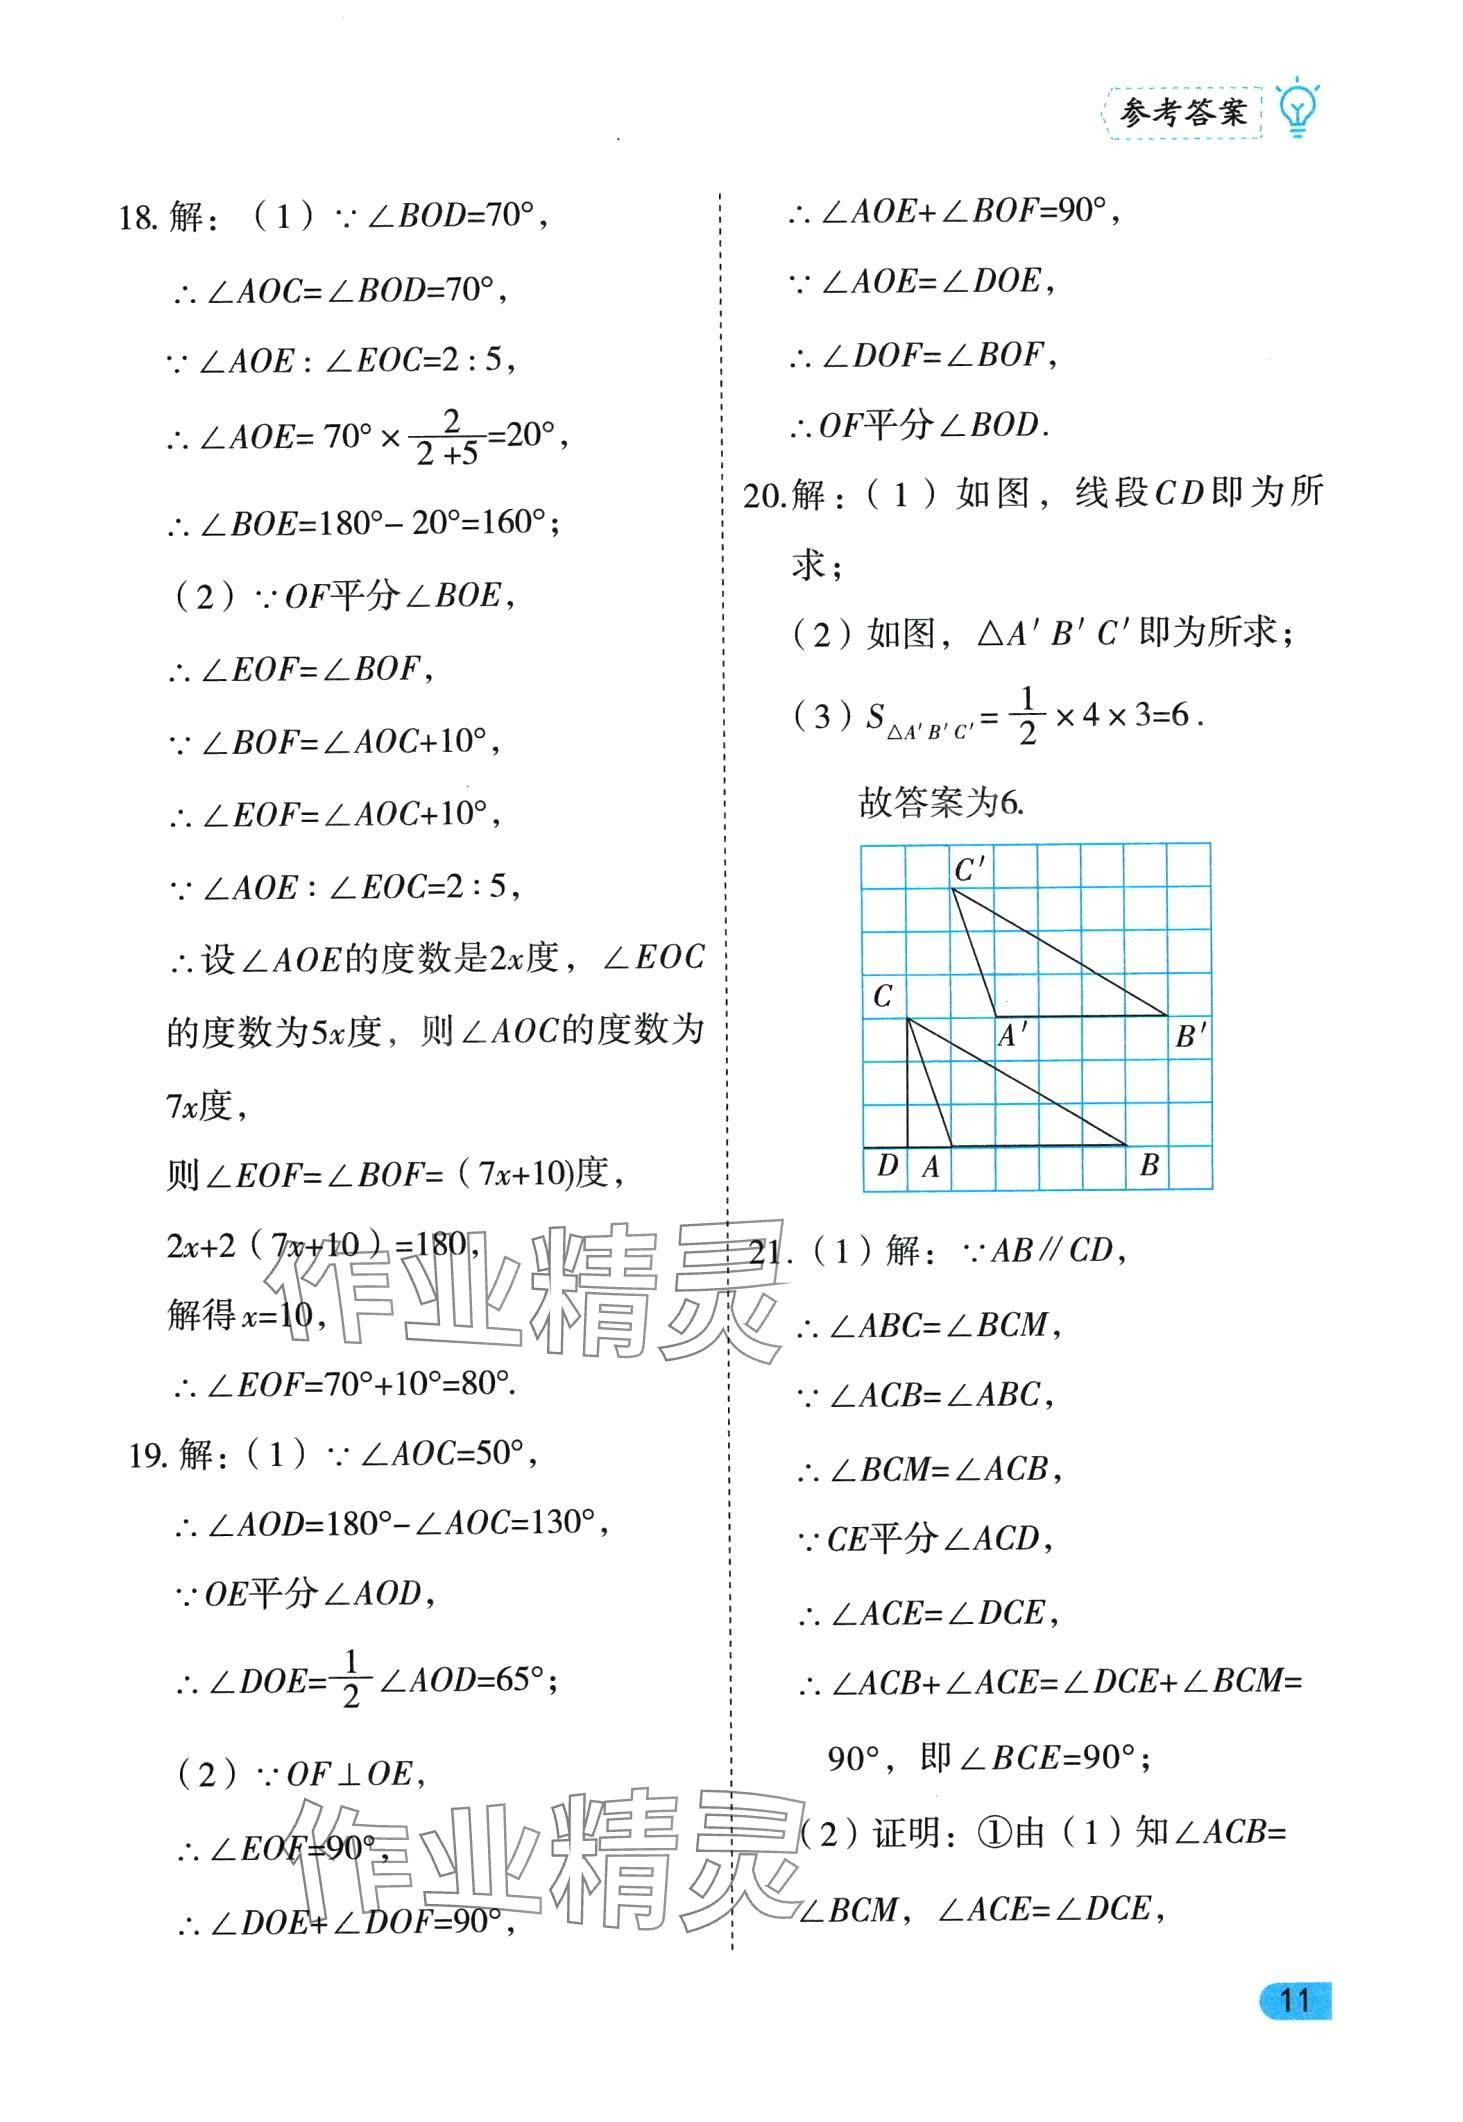 参考答案
18. 解：（1）∵∠BOD=70°，
∴∠AOC=∠BOD=70°，
∵∠AOE：∠EOC=2：5，
∴∠AOE= 70°×2/(2+5)=20°，
∴∠BOE=180°－20°=160°；
（2）∵OF平分∠BOE，
∴∠EOF=∠BOF，
∵∠BOF=∠AOC+10°，
∴∠EOF=∠AOC+10°，
∵∠AOE：∠EOC=2：5，
∴设∠AOE的度数是2x度，∠EOC
的度数为5x度，则∠AOC的度数为
7x度，
则∠EOF=∠BOF=（7x+10)度，
2x+2（7x+10）=180，
解得x=10，
∴∠EOF=70°+10°=80°.
19. 解：（1）∵∠AOC=50°，
∴∠AOD=180°－∠AOC=130°，
∵OE平分∠AOD，
∴∠DOE=1/2∠AOD=65°；
（2）∵OF⊥OE，
∴∠EOF=90°，
∴∠DOE+∠DOF=90°，
∴∠AOE+∠BOF=90°，
∵∠AOE=∠DOE，
∴∠DOF=∠BOF，
∴OF平分∠BOD.
20. 解：（1）如图，线段CD即为所
求；
（2）如图，△A′B′C′即为所求；
（3）S△A′B′C′=1/2×4×3=6.
故答案为6.
C′
C
A′
B′
D A B
21.（1）解：∵AB∥CD，
∴∠ABC=∠BCM，
∵∠ACB=∠ABC，
∴∠BCM=∠ACB，
∵CE平分∠ACD，
∴∠ACE=∠DCE，
∴∠ACB+∠ACE=∠DCE+∠BCM=
90°，即∠BCE=90°；
（2）证明：①由（1）知∠ACB=
∠BCM，∠ACE=∠DCE，
作业精灵
作业精灵
11